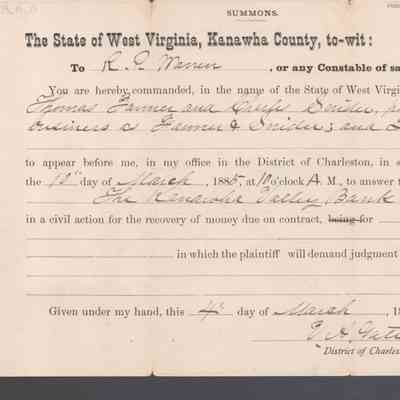 SUMMONS.
The State of West Virginia, Kanawha County, to-wit:
To R. P. Warren, or any Constable of sa
You are hereby commanded, in the name of the State of West Virgi
Thomas Farmer and Charles Snider, p
business as Farmer & Snider; and
to appear before me, in my office in the District of Charleston, in s
the 12" day of March, 1885, at 10 o'clock A. M., to answer t
The Kanawha Valley Bank
in a civil action for the recovery of money due on contract, being for
in which the plaintiff will demand judgment
Given under my hand, this 4" day of March, 1
District of Charles